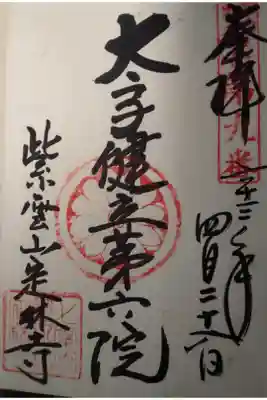 奉拝
二十三年
四月二十八日
太子健立第六院
紫雲山定林寺